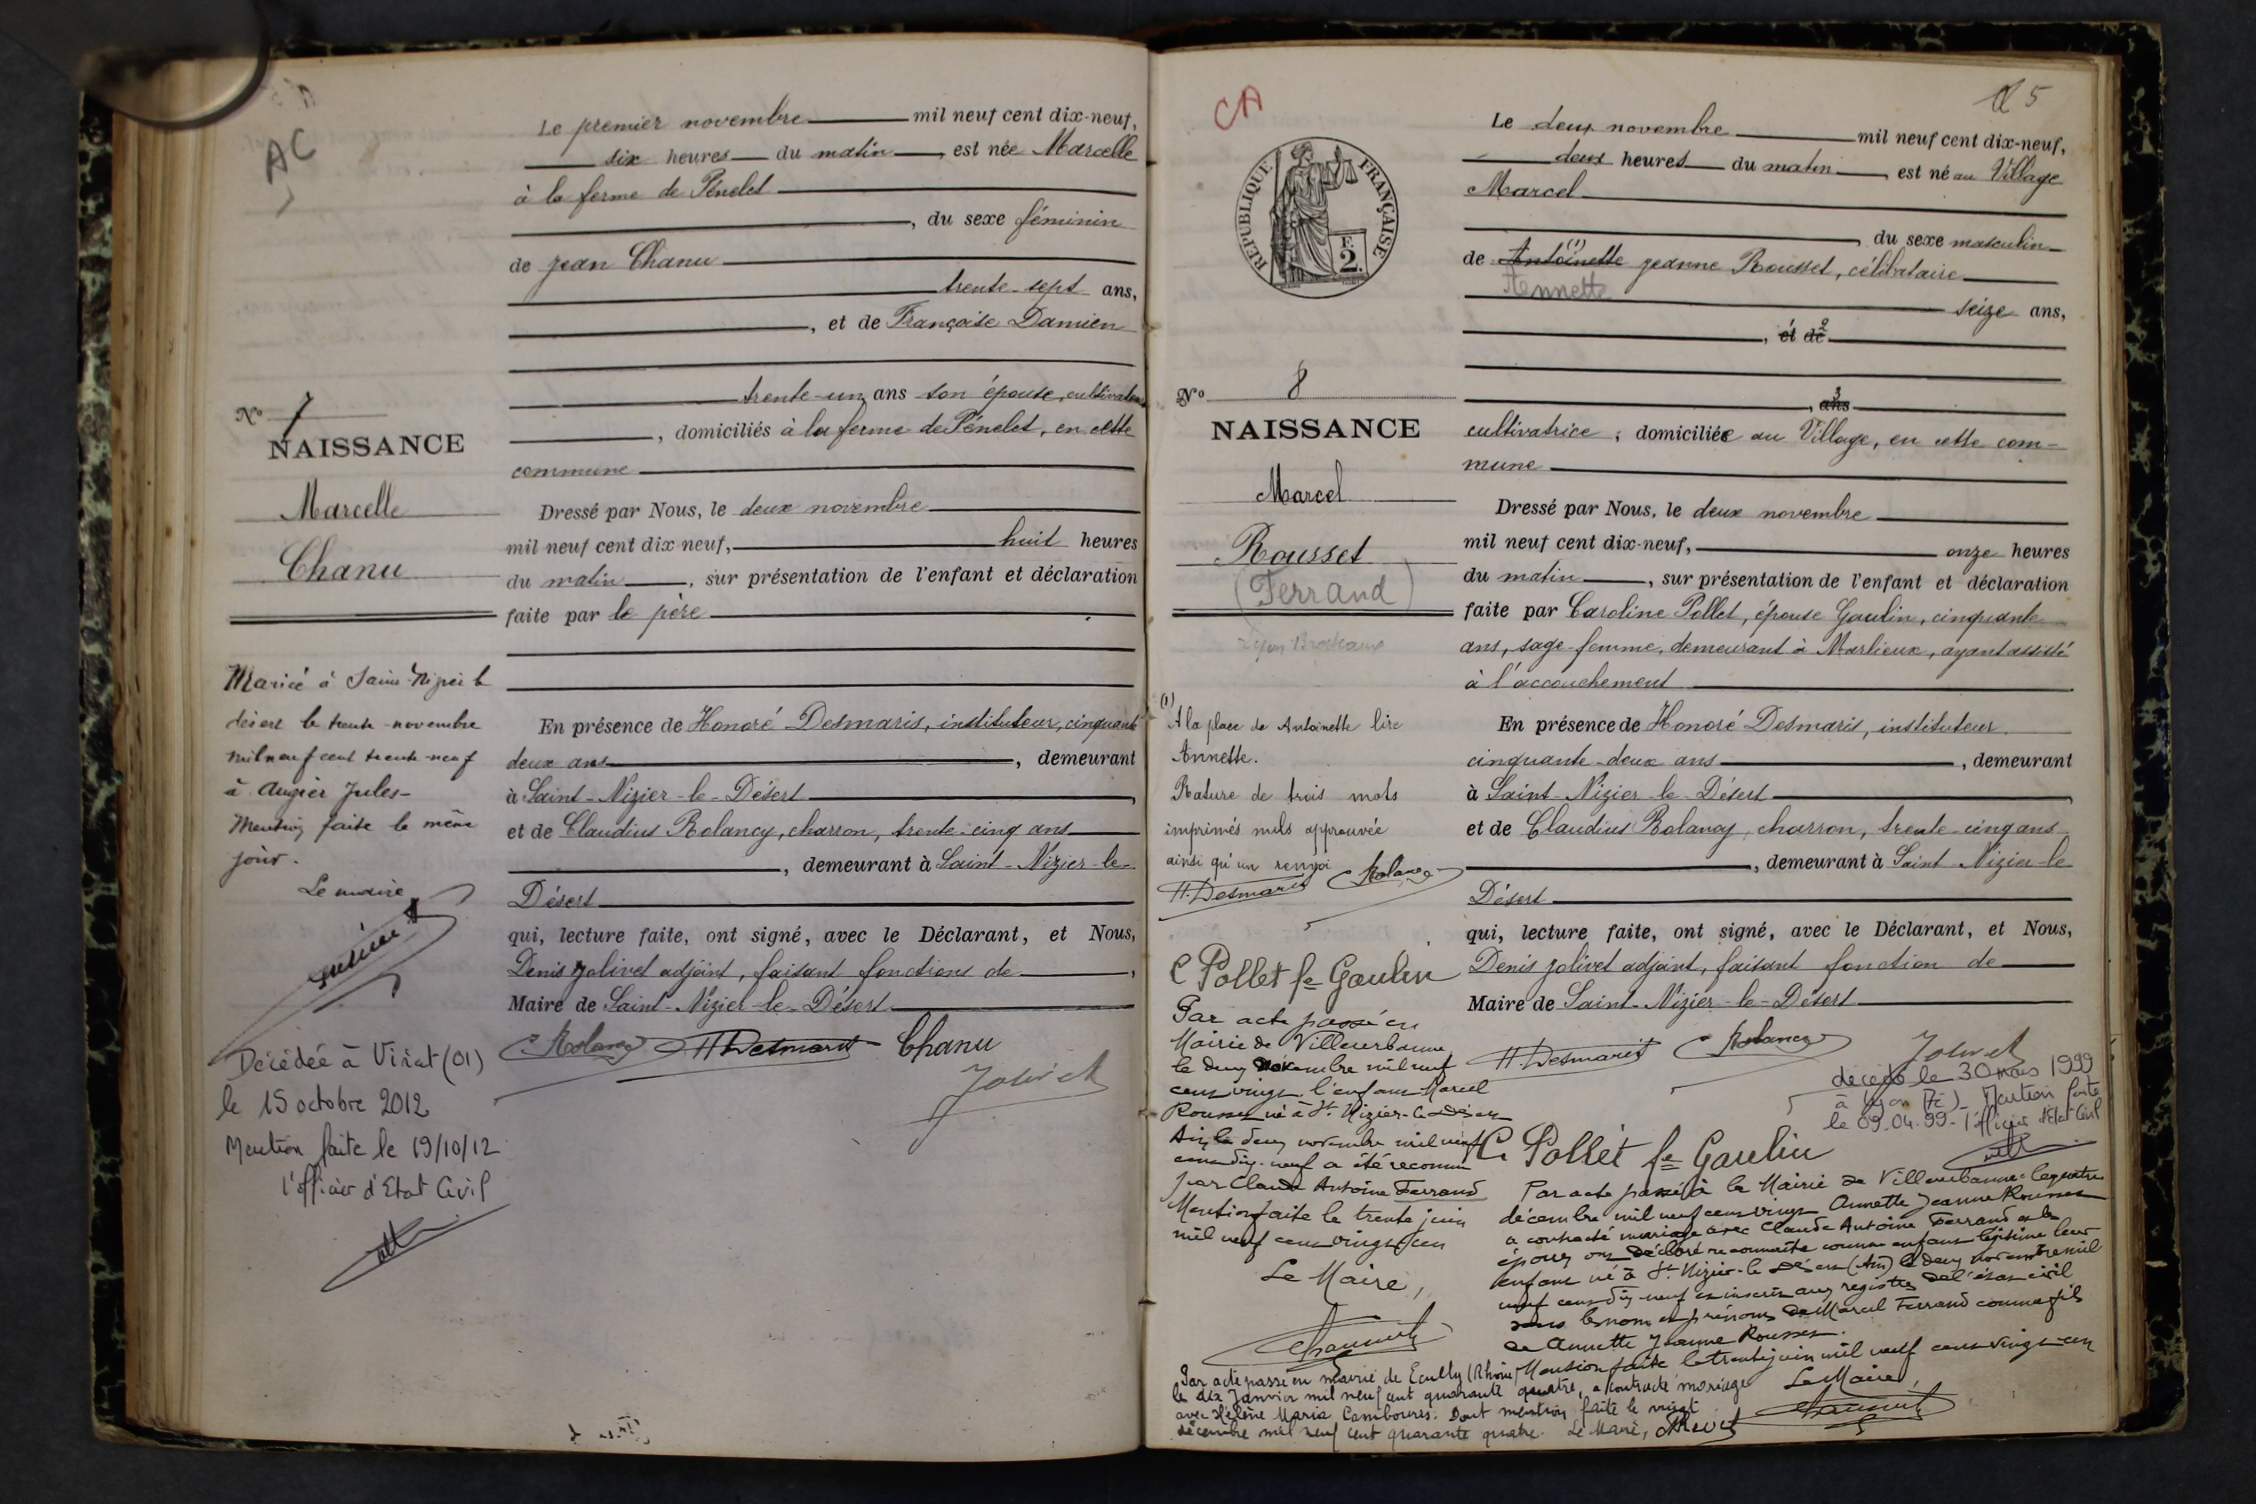 AC
Le premier novembre mil neuf cent dix-neuf,
six heures du matin, est née Marcelle
à la ferme de Pénelet
, du sexe féminin
de Jean Chanu
trente-sept ans,
, et de Françoise Damien
trente-un ans son épouse, cultivateurs
, domiciliés à la ferme de Pénelet, en cette
commune
Dressé par Nous, le deux novembre
mil neuf cent dix-neuf, huit heures
du matin, sur présentation de l'enfant et déclaration
faite par le père
En présence de Honoré Desmaris, instituteur, cinquante
deux ans, demeurant
à Saint-Nizier-le-Désert,
et de Claudius Rolancy, charron, trente-cinq ans
, demeurant à Saint-Nizier-le-
Désert
qui, lecture faite, ont signé, avec le Déclarant, et Nous,
Denis Jolivet adjoint, faisant fonctions de,
Maire de Saint-Nizier-le-Désert
Rolancy H. Desmaris Chanu
Jolivet
N° 7
NAISSANCE
Marcelle
Chanu
Mariée à Saint-Nizier le
désert le trente novembre
mil neuf cent trente-neuf
à Augier Jules-
Mention faite le même
jour.
Le maire
Décédée à Viriat (01)
le 15 octobre 2012
Mention faite le 19/10/12
l'officier d'Etat Civil
CA
5
RÉPUBLIQUE FRANÇAISE
F.
2.
Le deux novembre mil neuf cent dix-neuf,
deux heures du matin, est né au Village
Marcel
, du sexe masculin
de Antoinette (1) Jeanne Rousset, célibataire
Annette
seize ans,
, et de 2
, ans 3
cultivatrice, domiciliée au Village, en cette com-
mune
Dressé par Nous, le deux novembre
mil neuf cent dix-neuf, onze heures
du matin, sur présentation de l'enfant et déclaration
faite par Caroline Pollet, épouse Gaulin, cinquante
ans, sage-femme, demeurant à Marlieux, ayant assisté
à l'accouchement
En présence de Honoré Desmaris, instituteur
cinquante-deux ans, demeurant
à Saint-Nizier-le-Désert,
et de Claudius Rolancy, charron, trente-cinq ans
, demeurant à Saint-Nizier-le
Désert
qui, lecture faite, ont signé, avec le Déclarant, et Nous,
Denis Jolivet adjoint, faisant fonction de
Maire de Saint-Nizier-le-Désert
H. Desmaris Rolancy Jolivet
N° 8
NAISSANCE
Marcel
Rousset
(Ferrand)
Lyon Brotteaux
(1)
A la place de Antoinette lire
Annette.
Rature de trois mots
imprimés nuls approuvée
ainsi qu'un renvoi
H. Desmaris Rolancy
C Pollet fe Gaulin
Par acte passé en
Mairie de Villeurbanne
le deux décembre mil neuf
cent vingt l'enfant Marcel
Rousset né à St. Nizier-le-Désert
Ain, le deux novembre mil neuf
cent dix-neuf a été reconnu
par Claude Antoine Ferrand
Mention faite le trente juin
mil neuf cent vingt un
Le Maire,
décédé le 30 mars 1999
à Lyon Mention faite
le 09.04.99 - l'officier d'Etat Civil
C. Pollet fe Gaulin
Par acte passé à la Mairie de Villeurbanne le quatre
décembre mil neuf cent vingt Annette Jeanne Rousset
a contracté mariage avec Claude Antoine Ferrand et les
époux ont déclaré reconnaître comme enfant légitime leur
enfant né à St. Nizier-le Désert (Ain) le deux novembre mil
neuf cent dix neuf et inscrit aux registres de l'état civil
sous les nom et prénoms de Marcel Ferrand comme fils
de Annette Jeanne Rousset.
Mention faite le trente juin mil neuf cent vingt-un
Le Maire,
Par acte passé en mairie de Ecully (Rhône)
le dix Janvier mil neuf cent quarante quatre, a contracté mariage
avec Hélène Maria Camboures. Dont mention faite le vingt
décembre mil neuf cent quarante quatre. Le Maire,